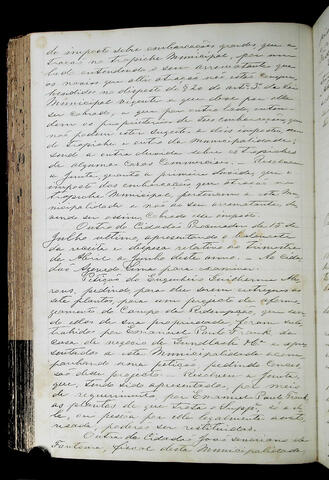 de imposto sobre embarcações grandes que a-
tracão no trapiche Municipal, por um
lado entendendo o seu arrematante que
os navios que alli atracão não estão compre-
hendidos no disposto do § 20 do artº 3º da Lei
Municipal vigente e que deve por elle
ser cobrado, e que por outro lado, enten-
dem os proprietarios de taes embarcações que
não podem estar sugeitos a dois impostos, um
do trapiche e outro da Municipalidade;
sendo a outra duvida sobre os trapiches
de algumas Casas Commerciaes. — Resolveu
a Junta, quanto a primeira duvida, que o
imposto das embarcações que atracão no
trapiche Municipal, pertence a esta Mu-
nicipalidade e não ao seu arrematante, de-
vendo ser assim cobrado esse imposto.
Outro do Cidadão Procurador de 15 de
Julho ultimo, apresentando o balancete
da receita e despeza relativo ao trimestre
de Abril a Junho deste anno. — Ao Cida-
dão Azevedo Lima para examinar.
Petição do Engenheiro Guilherme Ah-
rons, pedindo para lhe serem restituidas
sete plantas, para um projecto de aformo-
zeamento do Campo da Redempção, que sen-
do ellas de sua propriedade forão sub-
trahidas por Emanuel Paul Frank da
casa de negocio de Gundlach & Cª e apre-
sentadas a esta Municipalidade acom-
panhando uma petição pedindo conces-
são desse projecto. Resolveu a Junta
que, tendo sido apresentadas, por meio
de requerimento, por Emanuel Paul Frank
as plantas de que trata o Suppe, só a el-
le, ou pessoa por elle legalmente auto-
risada, poderão ser restituidas.
Outra do Cidadão João Januario da
Fontoura, fiscal desta Municipalidade